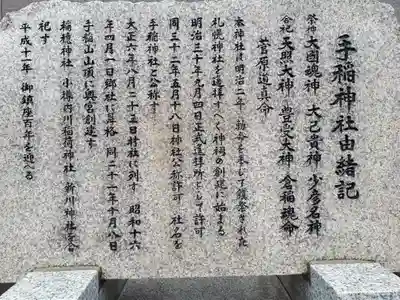 手稲神社由緒記
祭神 大國魂神 大己貴神 少彦名神
合祀 天照大神 豊受大神 倉稲魂命
菅原道真命
本神社は明治二年 勅命を奉じて鎮斎された
札幌神社を遥拝すべく神祠の創建に始まる
明治三十年九月四日正式遥拝所として許可
同三十二年五月十八日神社公称許可 社名を
手稲神社と公称す
大正六年八月二十三日村社に列す 昭和十六
年四月一日郷社に昇格 同二十一年十月八日
手稲山山頂に奥宮創建す
稲穂神社 小樽内川稲荷神社 新川神社を合
祀す
平成十一年 御鎮座百年を迎える